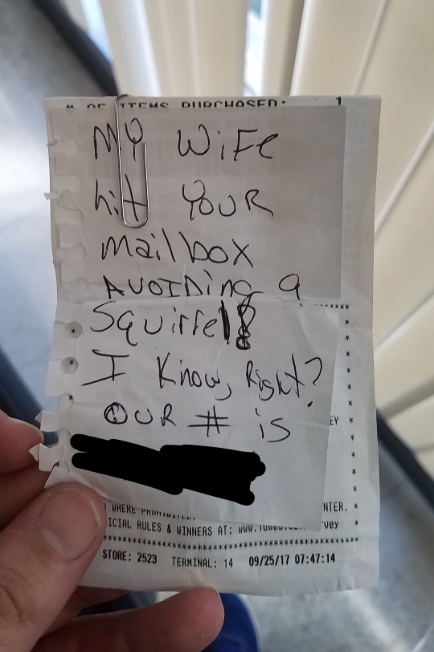 # OF ITEMS PURCHASED: 1
MY WiFe
hit YOUR
mailbox
AVOIDing a
Squirrel
I Know, Right?
OUR # is
EY
WHERE PROHIBITED. NTER.
ICIAL RULES & WINNERS AT: vey
STORE: 2523 TERMINAL: 14 09/25/17 07:47:14